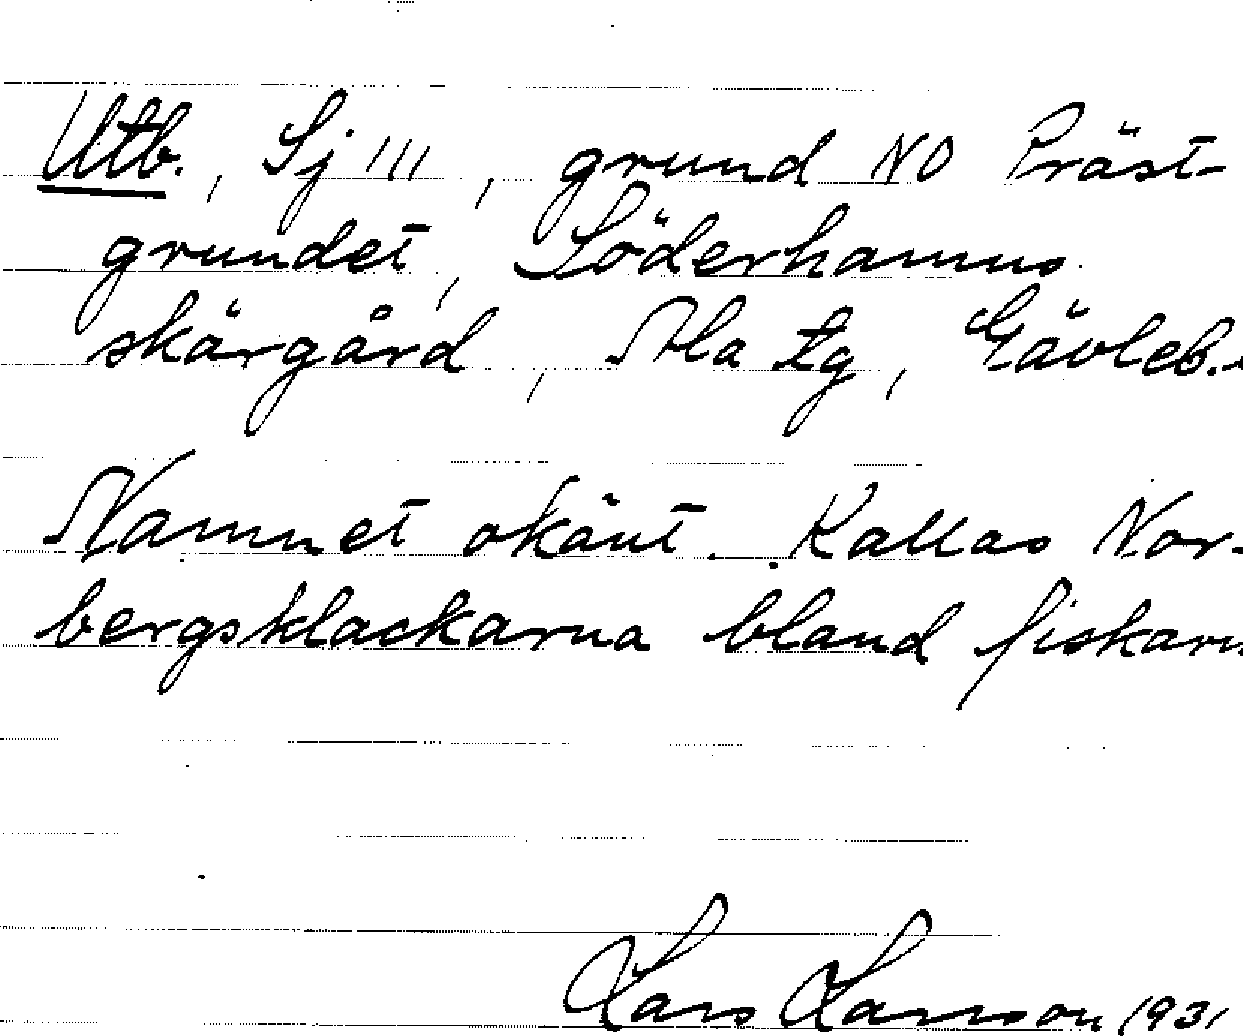 Utb., Sj III, grund NO Präst-
grundet, Söderhamns
skärgård, Ala tg, Gävleb.
Namnet okänt. Kallas Nor-
bergsklackarna bland fiskarn
Lars Larsson 1931